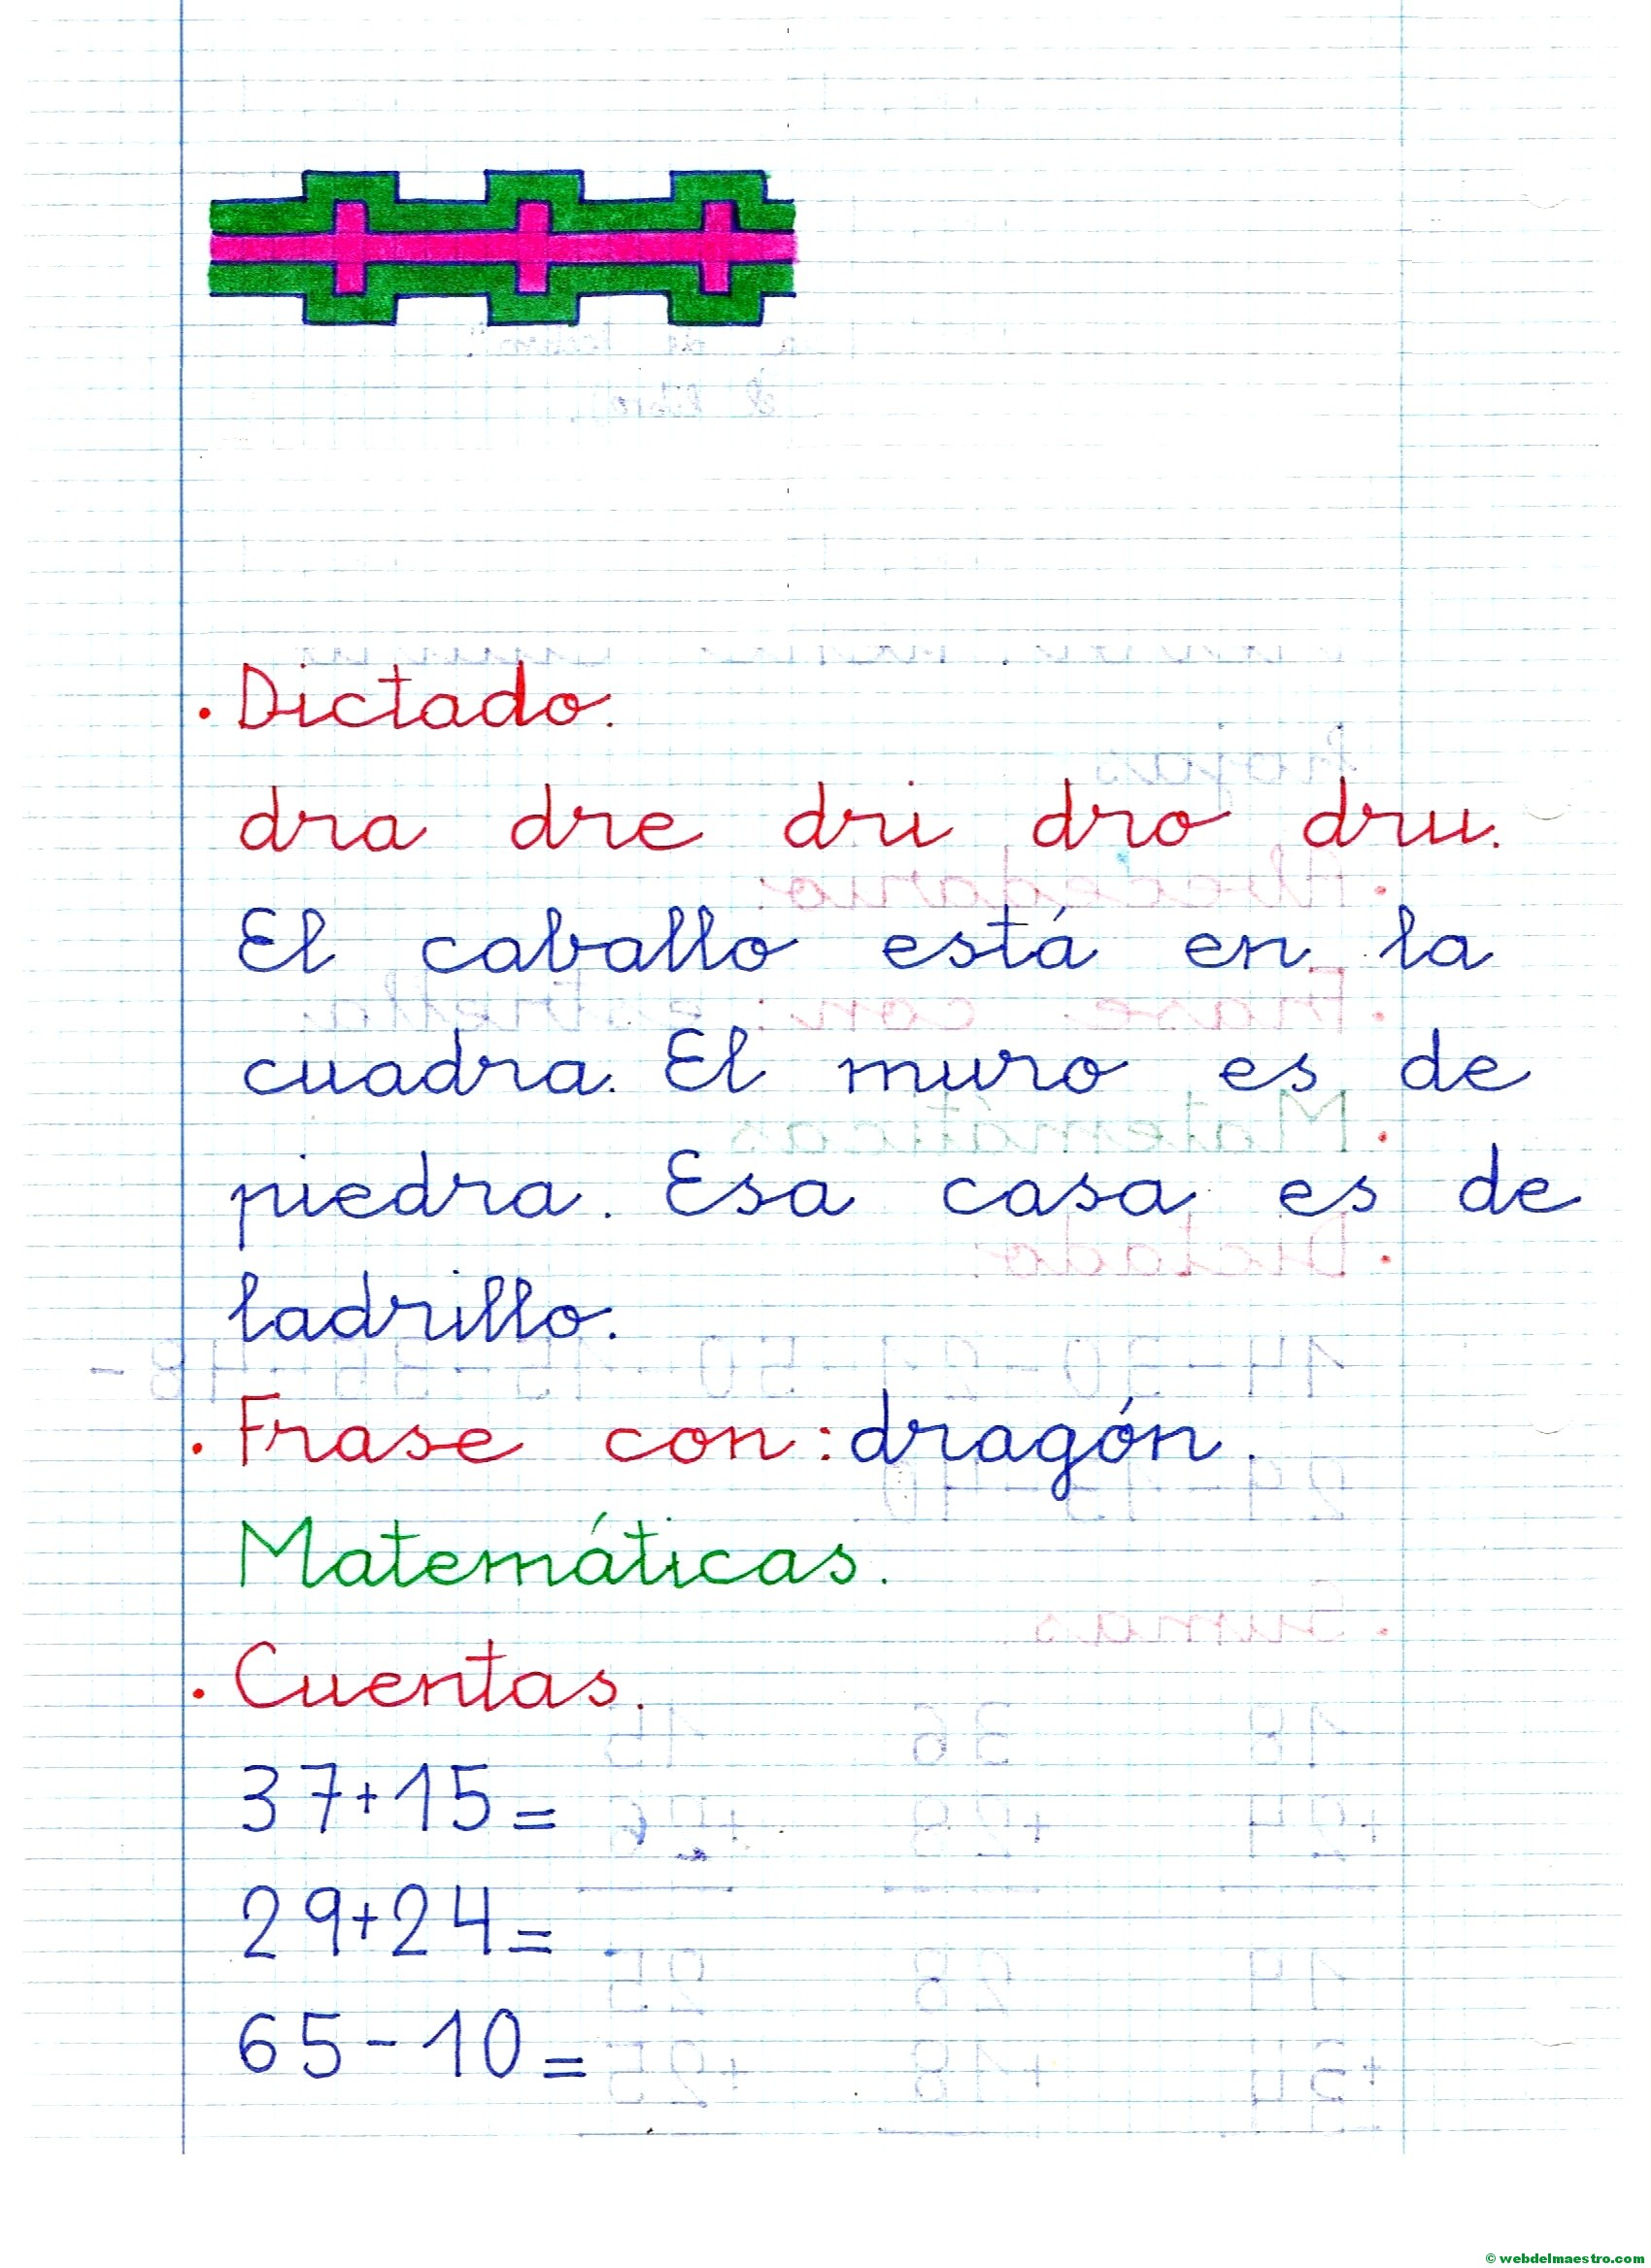 . Dictado.
dra dre dri dro dru.
El caballo está en la
cuadra. El muro es de
piedra. Esa casa es de
ladrillo.
. Frase con: dragón.
Matemáticas.
. Cuentas.
37+15=
29+24=
65-10=
© webdelmaestro.com